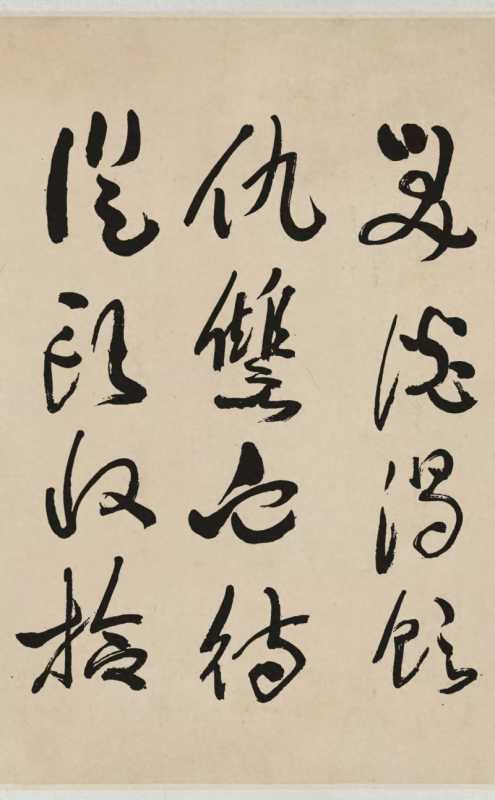 笑談渴飲
仇讎血待
從頭收拾